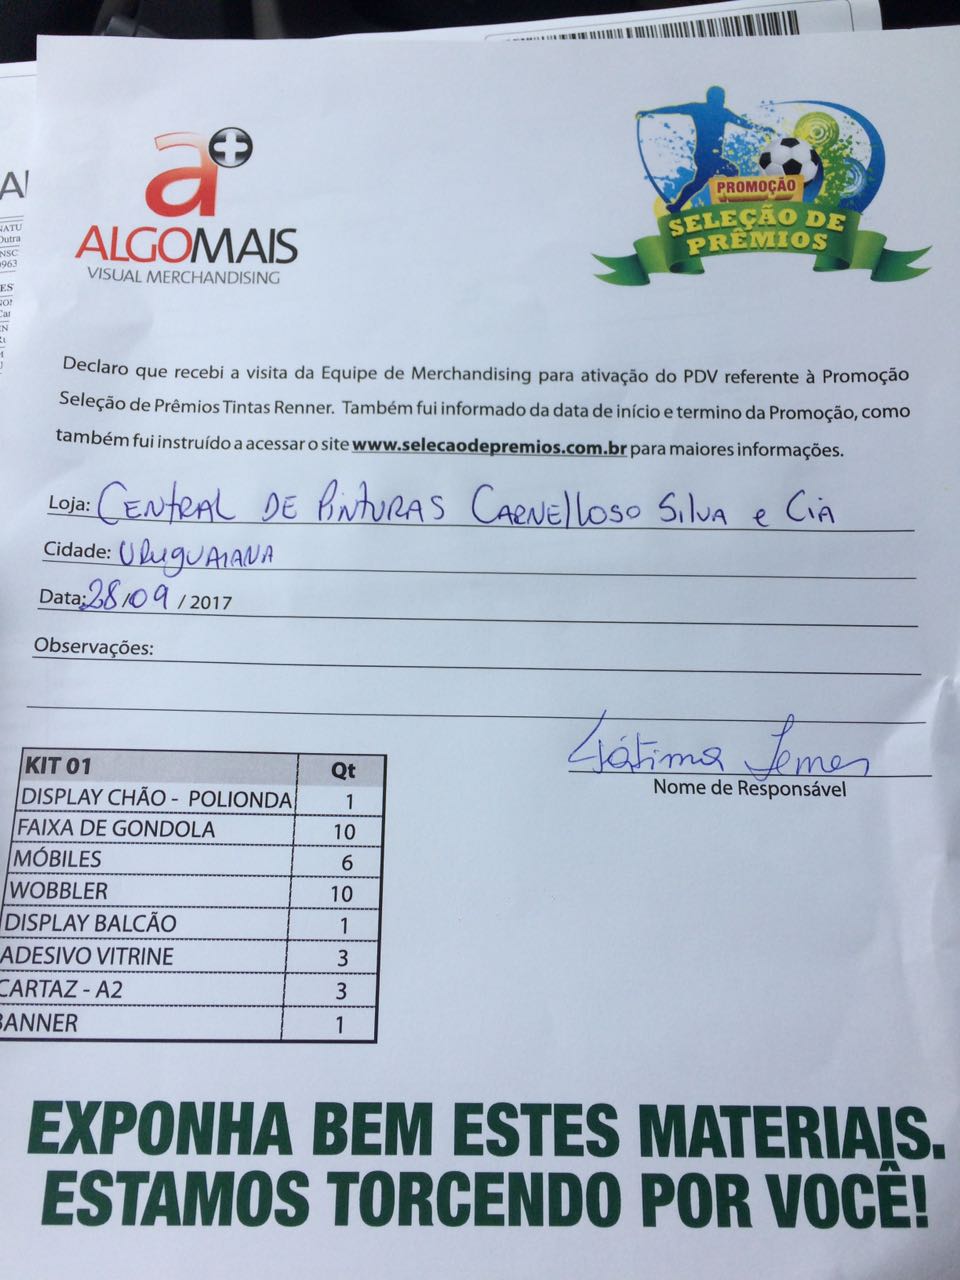 a+
ALGOMAIS
VISUAL MERCHANDISING
PROMOÇÃO
SELEÇÃO DE
PRÊMIOS
Declaro que recebi a visita da Equipe de Merchandising para ativação do PDV referente à Promoção
Seleção de Prêmios Tintas Renner. Também fui informado da data de início e termino da Promoção, como
também fui instruído a acessar o site www.selecaodepremios.com.br para maiores informações.
Loja: CENTRAL DE PINTURAS CARNELLOSO SILVA e CIA
Cidade: URUGUAIANA
Data: 28/09 / 2017
Observações:
Fátima Lemes
Nome de Responsável
KIT 01 Qt
DISPLAY CHÃO - POLIONDA 1
FAIXA DE GONDOLA 10
MÓBILES 6
WOBBLER 10
DISPLAY BALCÃO 1
ADESIVO VITRINE 3
CARTAZ - A2 3
BANNER 1
EXPONHA BEM ESTES MATERIAIS.
ESTAMOS TORCENDO POR VOCÊ!